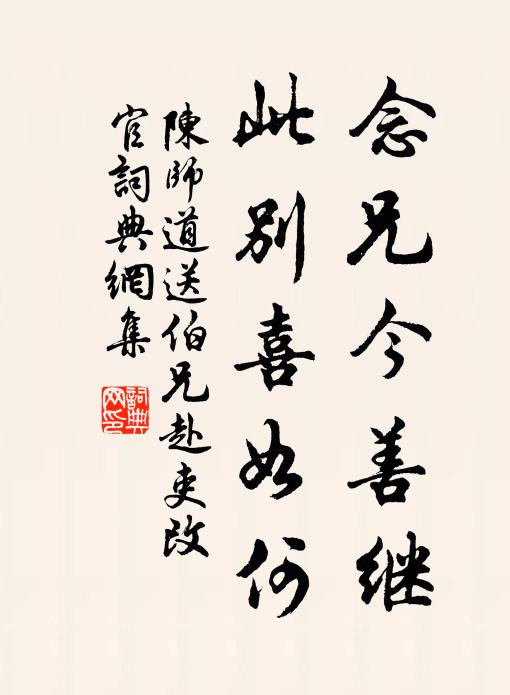 念兄今善继
此别喜如何
陳師道送伯兄赴吏改
官詞典網集
詞典網印